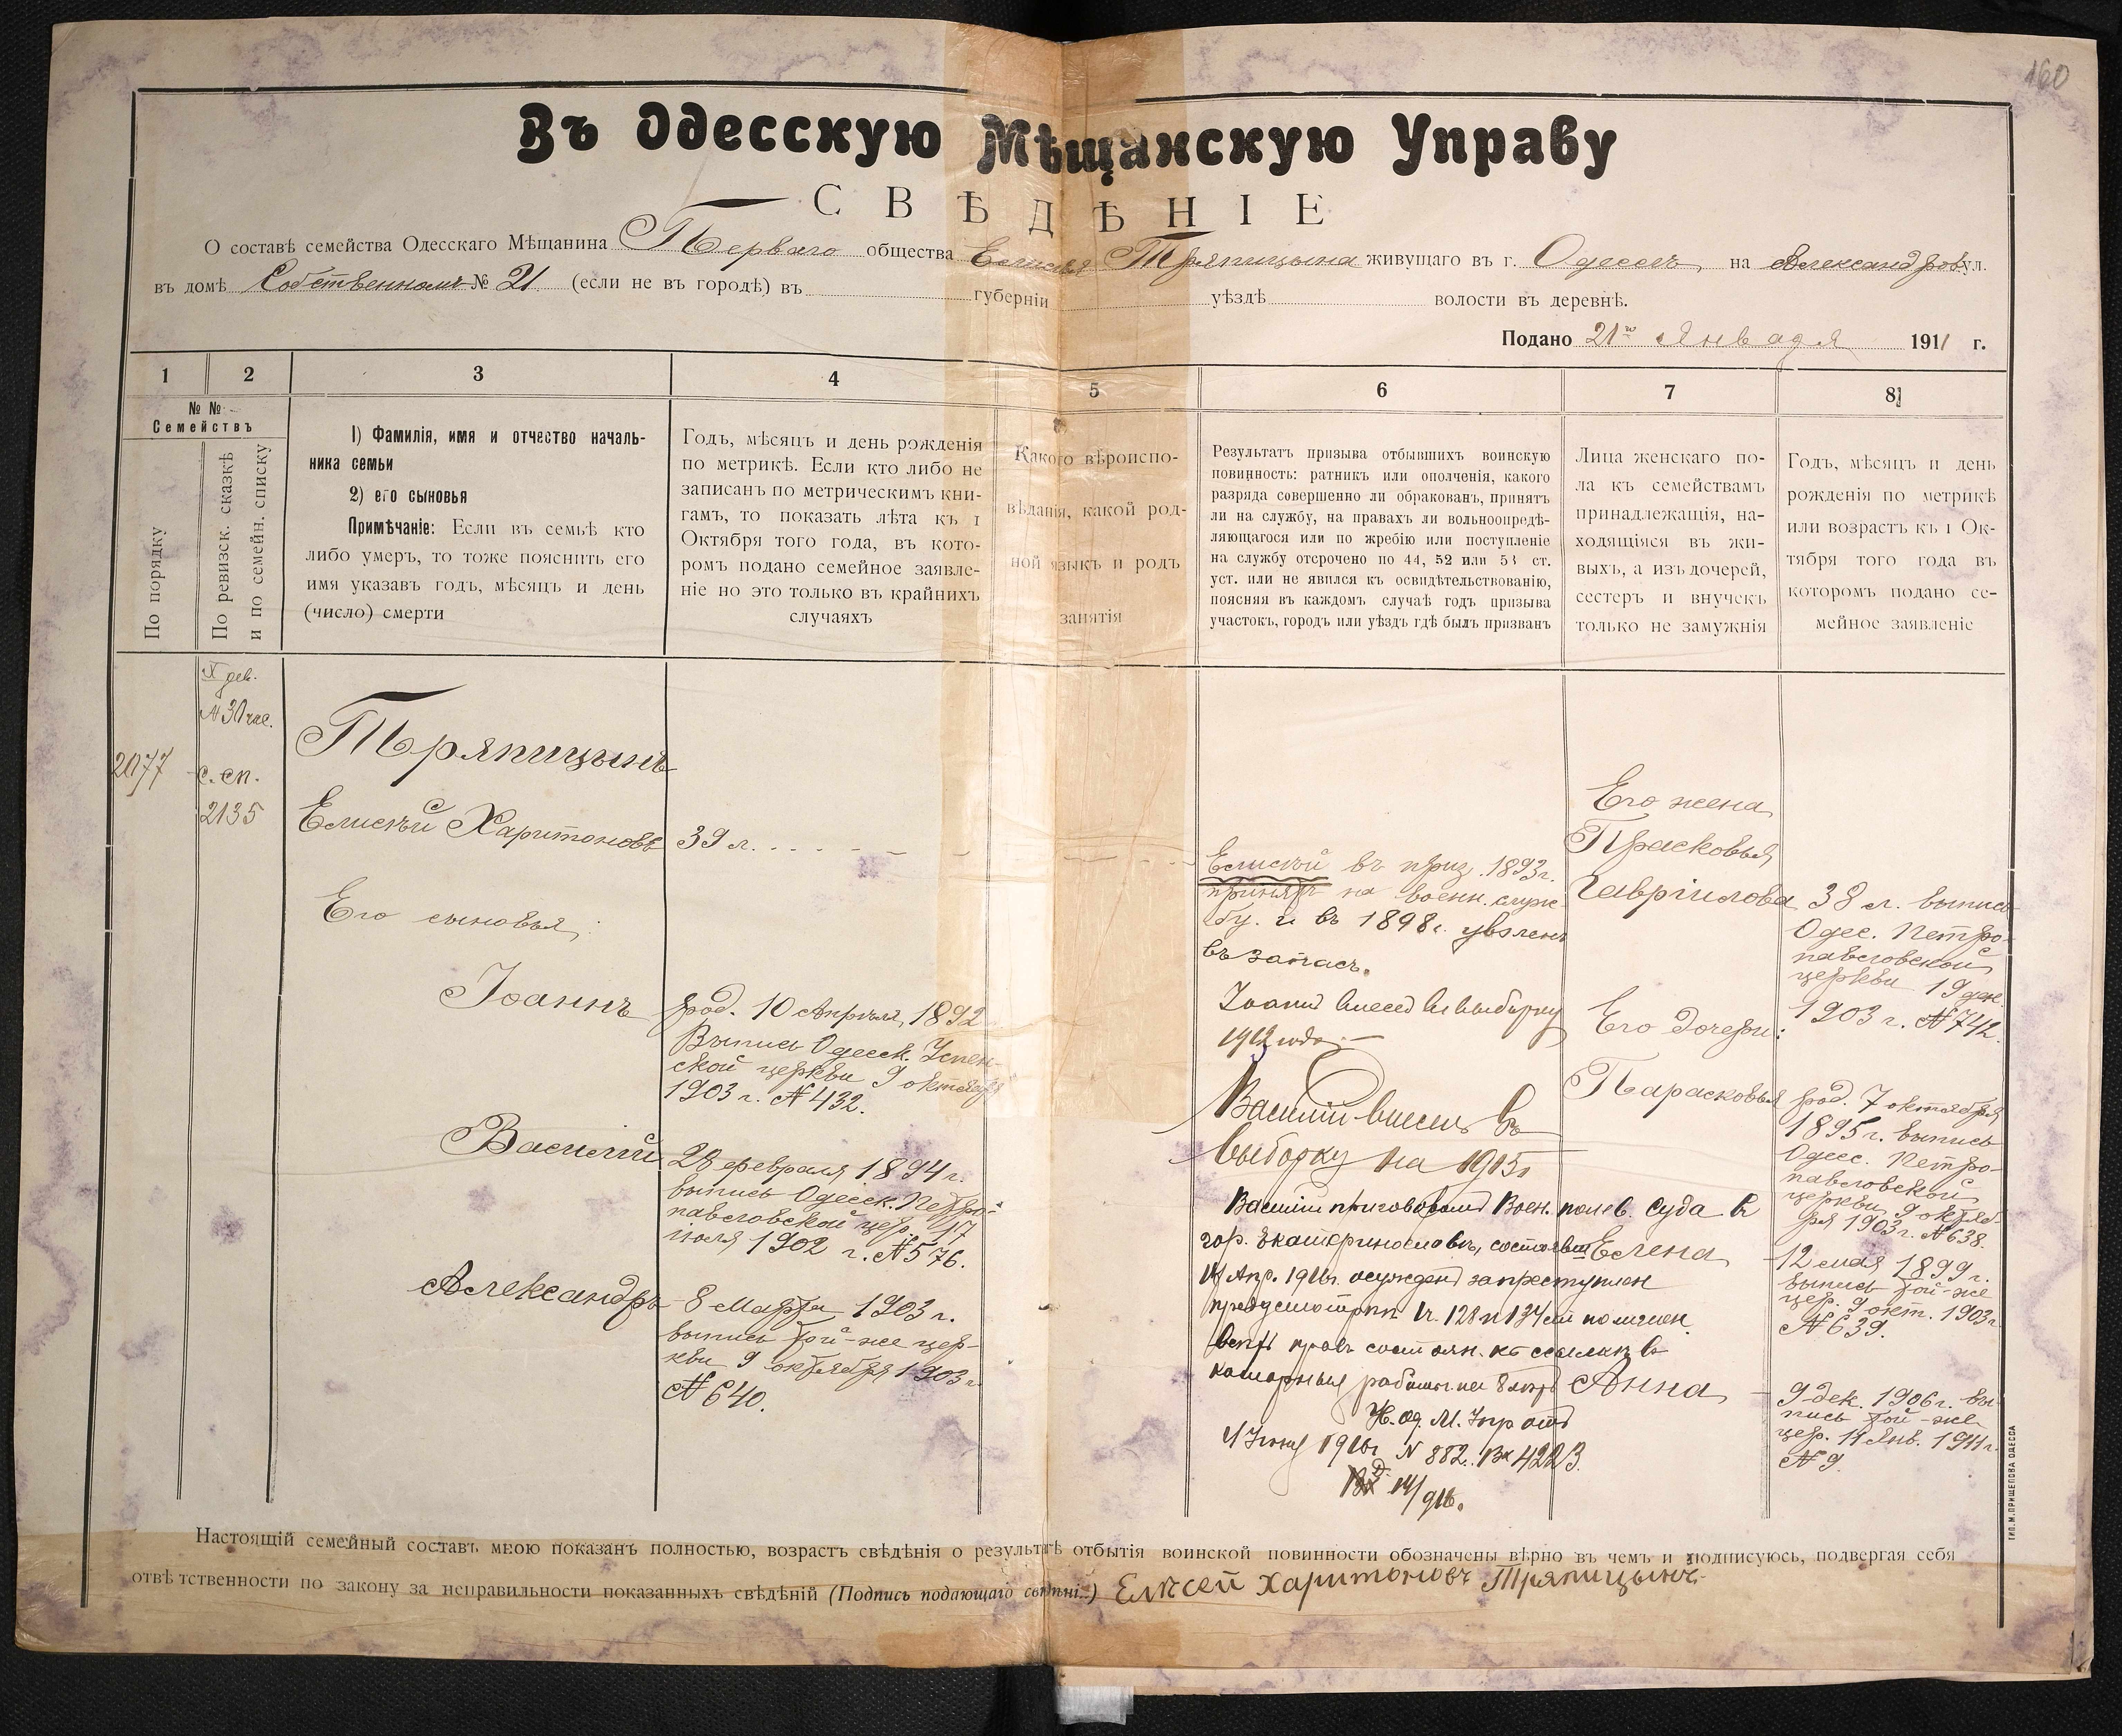 160
Въ Одесскую Мѣщанскую Управу
СВѢДѢНІЕ
О составѣ семейства Одесскаго Мѣщанина Перваго общества Елисѣя Тряпицына живущаго въ г. Одессѣ, на Александров ул.
въ домѣ Собственномъ № 21 (если не въ городѣ) въ губерніи уѣздѣ волости въ деревнѣ.
Подано 21го Января 1911 г.
1 2 3 4 5 6 7 8
№ №
Семействъ
По порядку
По ревизск. сказкѣ
и по семейн. списку
1) Фамилія, имя и отчество началь-
ника семьи
2) его сыновья
Примѣчаніе: Если въ семьѣ кто
либо умеръ, то тоже пояснить его
имя указавъ годъ, мѣсяцъ и день
(число) смерти
Годъ, мѣсяцъ и день рожденія
по метрикѣ. Если кто либо не
записанъ по метрическимъ кни-
гамъ, то показать лѣта къ 1
Октября того года, въ кото-
ромъ подано семейное заявле-
ніе но это только въ крайнихъ
случаяхъ
Какого вѣроиспо-
вѣданія, какой род-
ной языкъ и родъ
занятія
Результатъ призыва отбывшихъ воинскую
повинность: ратникъ или ополченія, какого
разряда совершенно ли обракованъ, принятъ
ли на службу, на правахъ ли вольноопредѣ-
ляющагося или по жребію или поступленіе
на службу отсрочено по 44, 52 или 53 ст.
уст. или не явился къ освидѣтельствованію,
поясняя въ каждомъ случаѣ годъ призыва
участокъ, городъ или уѣздъ гдѣ былъ призванъ
Лица женскаго по-
ла къ семействамъ
принадлежащія, на-
ходящіяся въ жи-
выхъ, а изъ дочерей,
сестеръ и внучекъ
только не замужнія
Годъ, мѣсяцъ и день
рожденія по метрикѣ
или возрастъ къ 1 Ок-
тября того года въ
которомъ подано се-
мейное заявленіе
2077
X рев.
с. сп.
2135
Тряпицынъ
Елисѣй Харитоновъ
Его сыновья:
Іоаннъ
Василій
Александръ
39 л.
род. 10 Апрѣля, 1892
Выпись Одесск. Успен-
ской церкви 9 октября
1903 г. № 432.
28 февраля 1894 г.
выпись Одесск. Петро-
павловской цер. 17
іюля 1902 г. № 576.
8 Марта 1903 г.
выпись той-же цер-
кви 9 октября 1903 г.
№ 640.
Елисѣй въ приз. 1893 г.
принятъ на военн. служ-
бу. и въ 1898 г. уволенъ
въ запасъ.
Іоаннъ внесенъ въ выборку
1912 года
Василій внесенъ въ
выборку на 1915 г.
Василій приговоромъ Воен. полев. суда въ
гор. Екатеринославѣ, состоявш
Апр. 1916 г. осужденъ за преступлен
предусмотрѣн. 1 ч. 128 и 134 ст лишен.
всѣхъ правъ состоян. къ ссылкѣ въ
каторжныя работы на 8 лѣтъ
1916 г. № 882. Вх 4223.
Его жена
Прасковья
Гавріилова
Его дочери:
Парасковья
Елена
Анна
38 л. выпись
Одес. Петро-
павловской
церкви 19 дек.
1903 г. № 742.
род. 7 октября
1895 г. выпись
Одесс. Петро-
павловской
церкви 9 октяб-
ря 1903 г. № 638.
12 мая 1899 г.
выпись той-же
цер. 9 окт. 1903 г.
№ 639.
9 дек. 1906 г. вы-
пись той-же
цер. 11 Янв. 1911 г.
№ 9.
Настоящій семейный составъ мною показанъ полностью, возрастъ свѣдѣнія о результатѣ отбытія воинской повинности обозначены вѣрно въ чемъ и подписуюсь, подвергая себя
отвѣтственности по закону за неправильности показанныхъ свѣдѣній (Подпись подающаго свѣдѣні..) Елѣсей Харитоновъ Тряпицынъ
ТИП. М. ПРИЩЕПОВА ОДЕССА